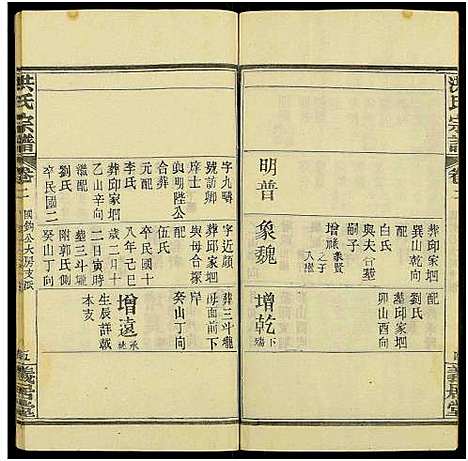 洪氏宗譜
卷二
義居堂
葬邱家垇
巽山乾向
配
白氏
與夫合墓
增祿象賢
之子
入繼
明普
象魏
配
劉氏
墓邱家垇
卯山酉向
增乾
洪氏宗譜
卷二
國鈞公大房支派
五
義居堂
字九疇
號訪卿
庠士
與明陞公
合葬
元配
李氏
葬邱家垇
乙山辛向
繼配
劉氏
卒民國二
字近顏
前下
與母合墓
癸山丁向
配
伍氏
卒民國十
八年己巳
歲二月十
二日寅時
墓三斗壠
附郭氏側
癸山丁向
葬三斗壠
增遠
承繼
生辰詳載
本支